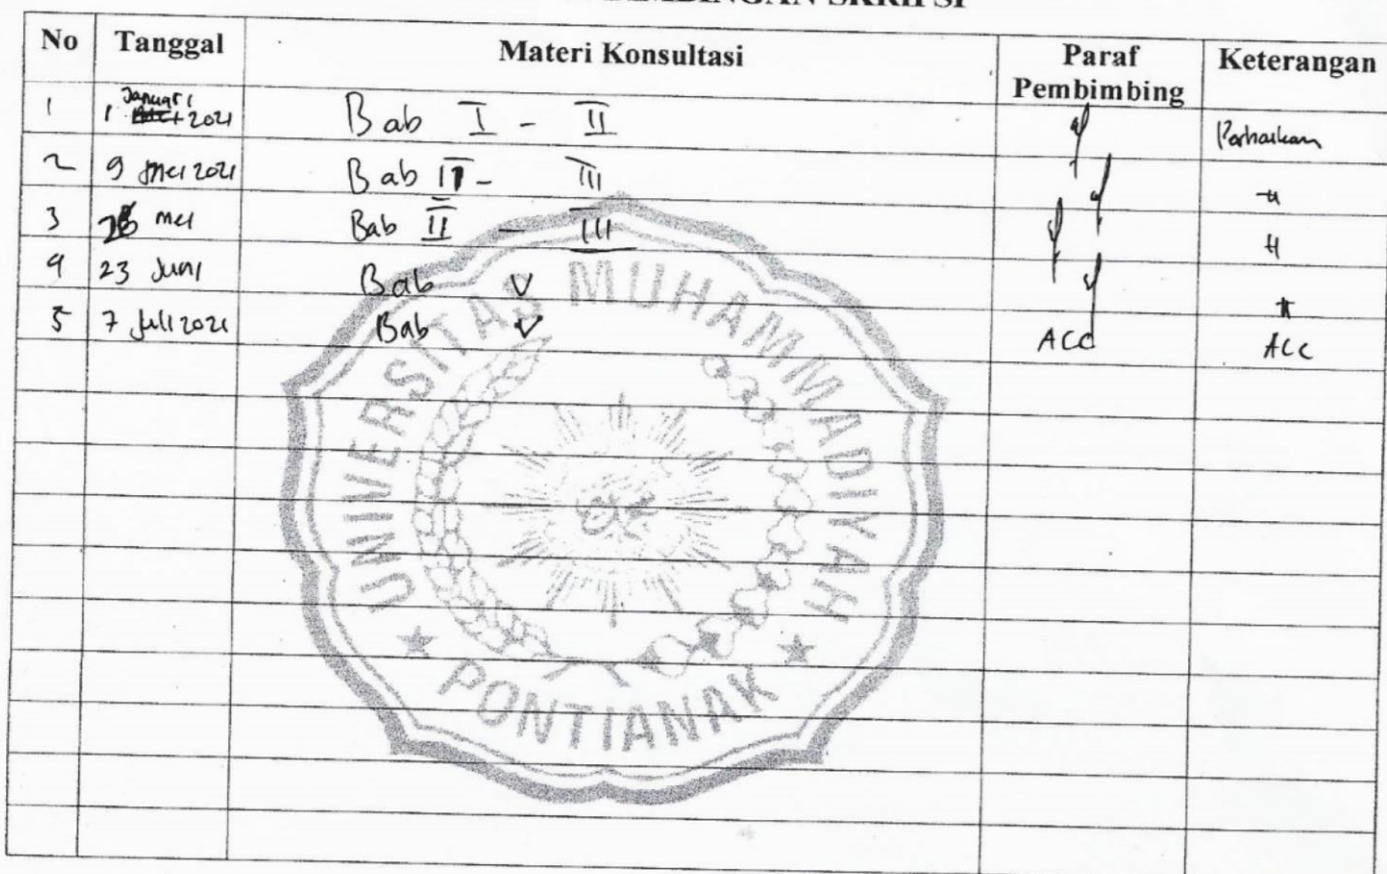 SKRIPSI
No Tanggal Materi Konsultasi Paraf Pembimbing Keterangan
1 1 Januari 2021 Bab I - II Perbaikan
2 9 mei 2021 Bab II - III "
3 mei Bab II - III "
4 23 Juni Bab V "
5 7 Juli 2021 Bab V ACC ACC
UNIVERSITAS MUHAMMADIYAH
PONTIANAK